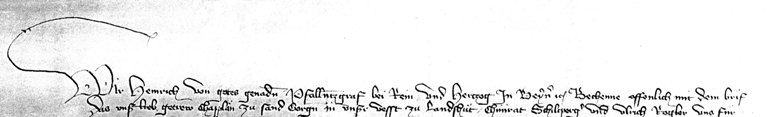 Wir Heinrich von gotes genaden Pfallenczgraf bei Rein und Herczog In Beyrn etc Bechenne offenlich mit dem brif
Das unser lieb getrew Chapplan zu sand Gorgn in unser vesst zu Landshut Chunrat Schilherg und Ulrich uns für